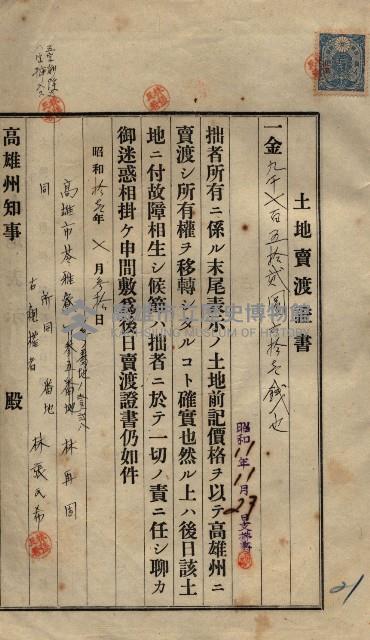 土地賣渡證書
一金九千七百五拾貳圓
拙者所有ニ係ル末尾表示ノ土地前記價格ヲ以テ高雄州ニ
賣渡シ所有權ヲ移轉シタルコト確實也然ル上ハ後日該土
地ニ付故障相生シ候節ハ拙者ニ於テ一切ノ責ニ任シ聊カ
御迷惑相掛ケ申間敷爲後日賣渡證書仍如件
昭和拾 年 月 日
昭和11年11月27日
高雄市苓雅寮 番地
林再固
同所同番地
右親權者
林張氏希
高雄州知事 殿
21
高雄市立歷史博物館